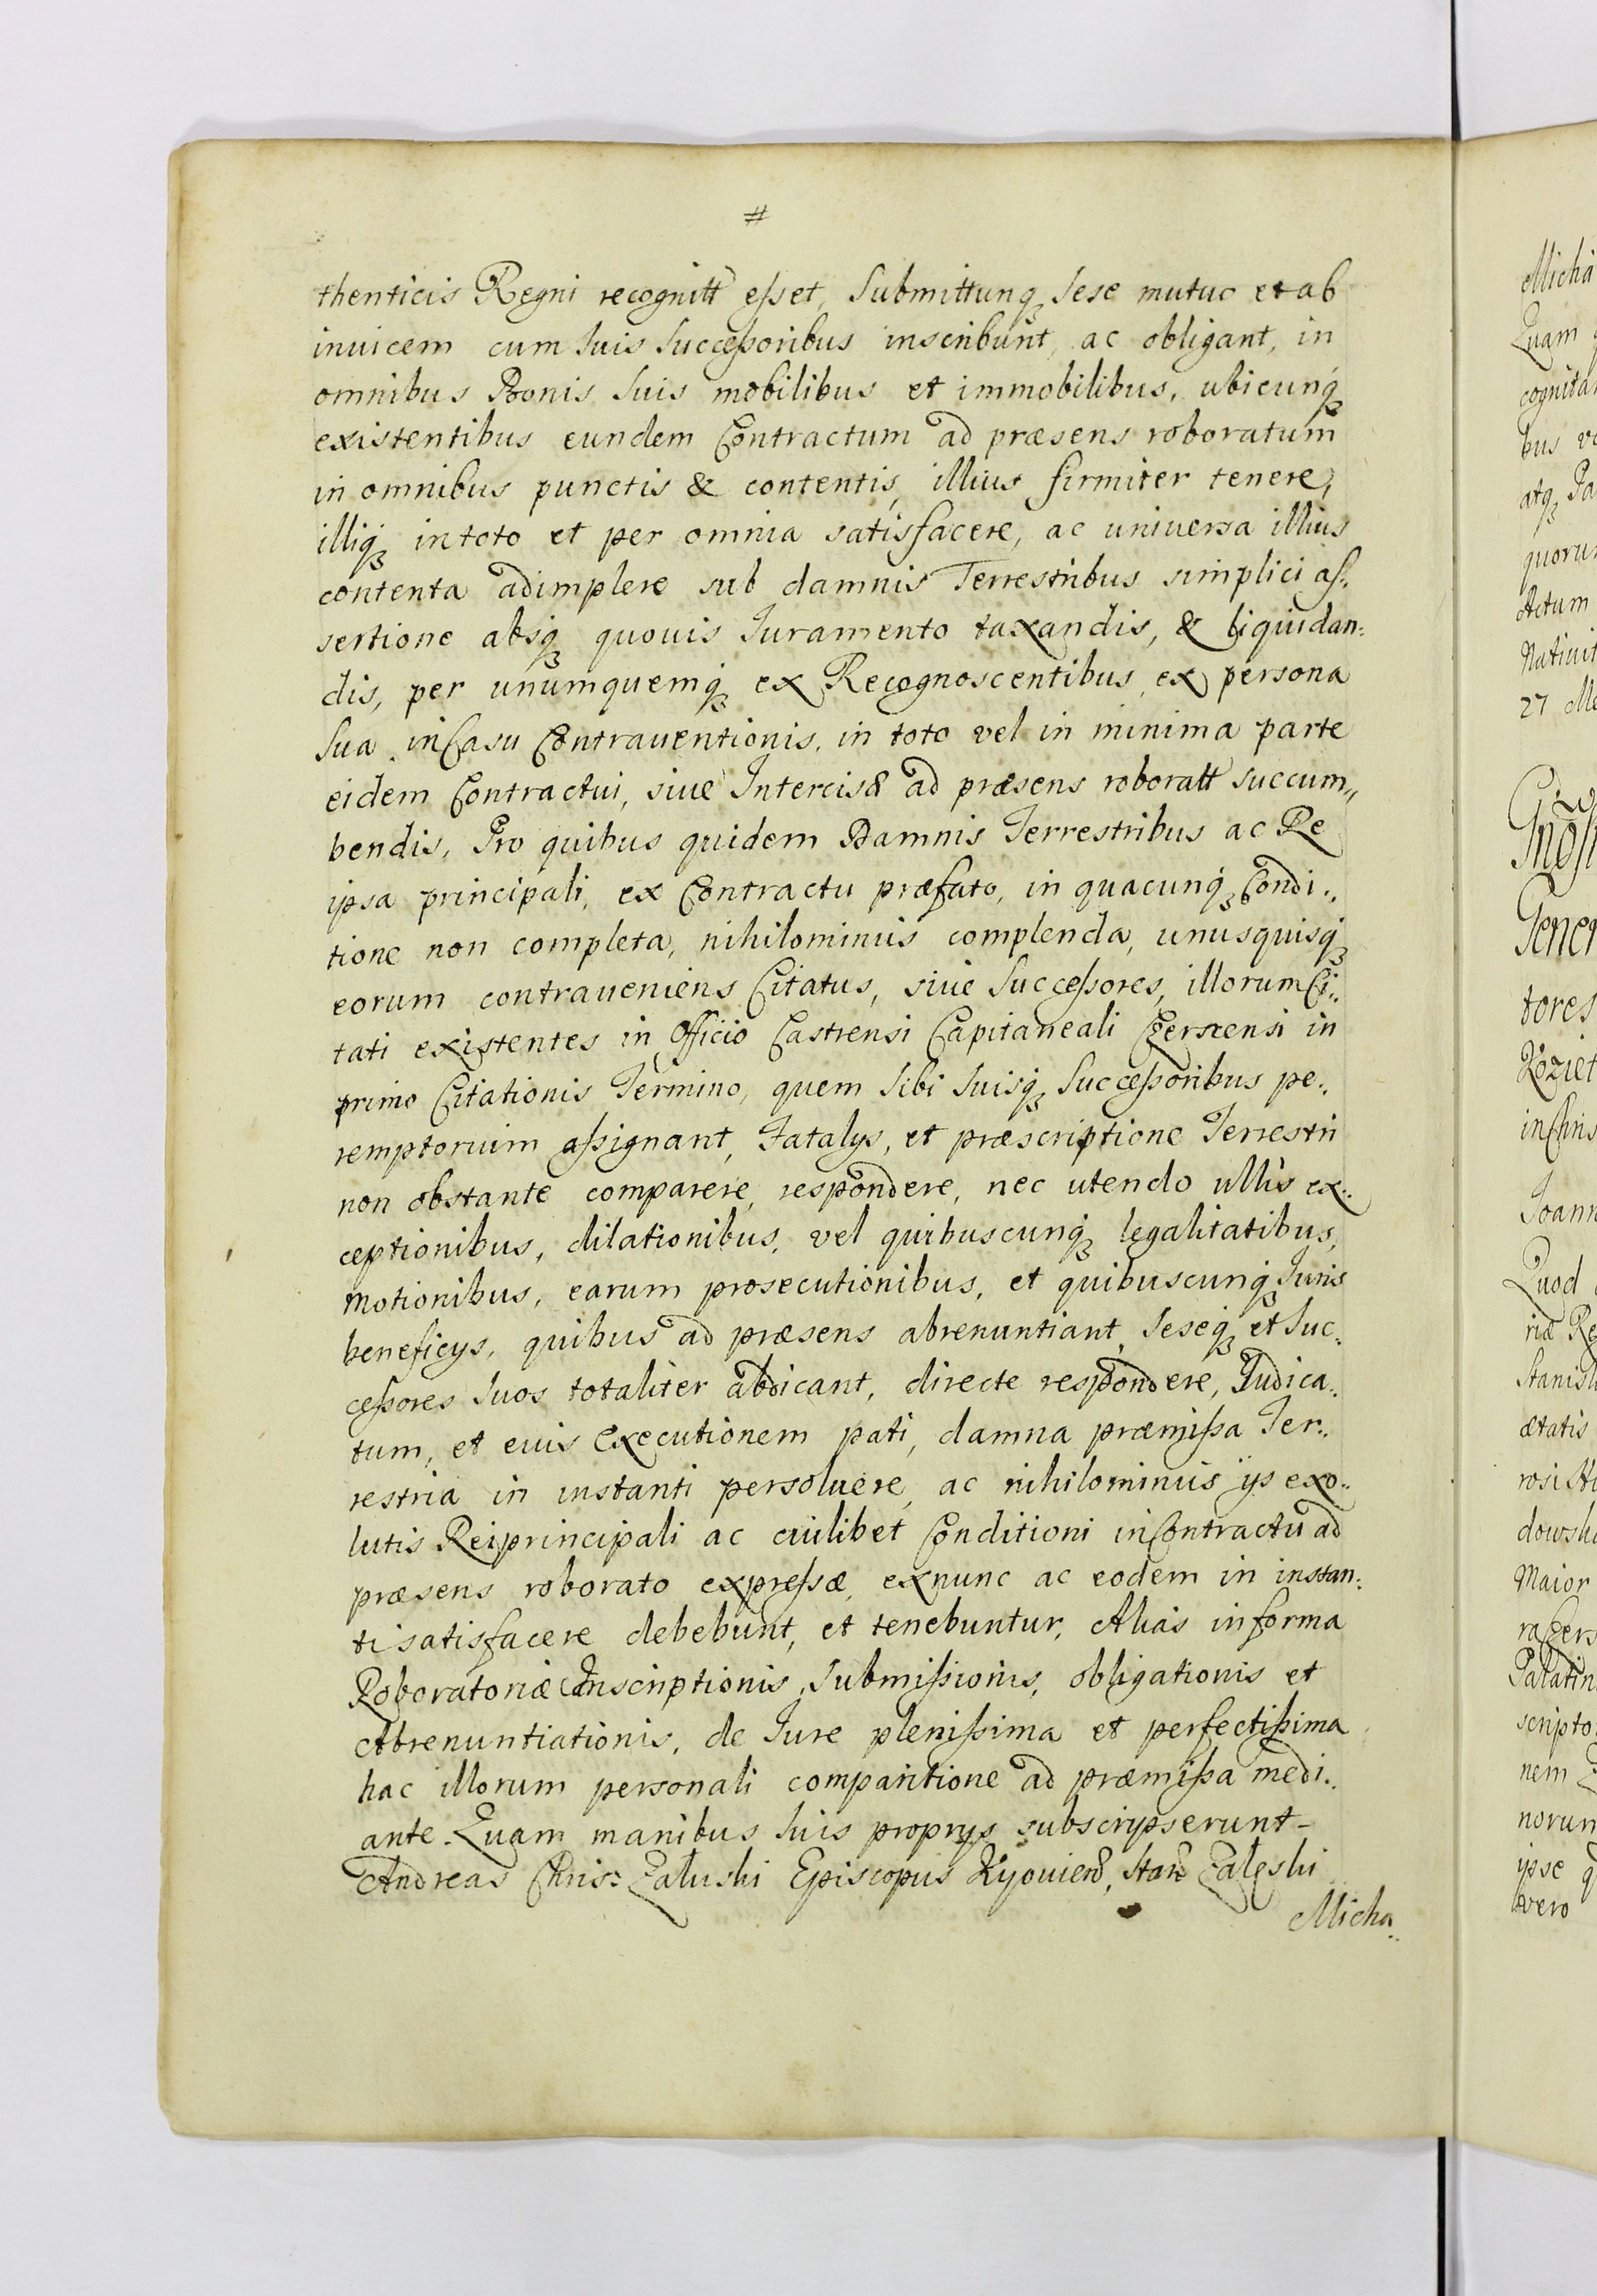 #
thenticis Regni recognitt esset, Submittunq, sese mutuo et ab
inuicem cum suis Successoribus inscribunt, ac obligant, in
omnibus Bonis suis mobilibus et immobilibus, ubicunq,
existentibus eundem Contractum ad præsens roboratum
in omnibus punctis & contentis, illius firmiter tenere,
illiq, in toto et per omnia satisfacere, ac universa illius
contenta adimplere sub damnis Terrestribus simplici as:
sertione absq, quouis Juramento taxandis, & liquidan:
dis, per unumquemq, ex Recognoscentibus, ex persona
sua, in Casu Contrauentionis, in toto vel in minima parte
eidem Contractui, siue Intercisæ ad præsens roboratt succum„
bendis, Pro quibus quidem Damnis Terrestribus ac Re
ipsa principali, ex Contractu præfato, in quacunq, Condi:
tione non completa, nihilominus complenda, unusquisq,
eorum contraueniens Citatus, siue Successores, illorum Ci:
tati existentes in Officio Castrensi Capitaneali Czerscensi in
primo Citationis Termino, quem sibi suisq, Successoribus pe:
remptorium assignant, Fatalys, et præscriptione Terrestri
non obstante comparere, respondere, nec utendo ullis ex:
ceptionibus, dilationibus, vel quibuscunq, legalitatibus,
motionibus, earum prosecutionibus, et quibuscunq, Juris
beneficys, quibus ad præsens abrenuntiant, seseq, et suc:
cessores suos totaliter abdicant, directe respondere, Judica:
tum, et euis Executionem pati, damna præmissa Ter:
restria in instanti persoluere, ac nihilominus ijs exo:
lutis Rei principali ac cuilibet Conditioni in Contractu ad
præsens roborato expressæ, ex nunc ac eodem in instan:
ti satisfacere debebunt, et tenebuntur, Alias in forma
Roboratoriæ Inscriptionis, Submissionis, obligationis et
Abrenuntiationis, de Jure plenissima et perfectissima
hac illorum personali comparitione ad præmissa medi:
ante. Quam manibus suis proprys subscripserunt -
Andreas Chris: Zaluski Episcopus Kyouien, Stan Zaleski
Micha:
Micha
Quam
cognita
bus
atq, Pa
quoru
Actum
Natiuit
27
Gener
tores
Koziet
Joann
Quod
riæ Re
Stanisl
ætatis
dowski
Maior
Palatin
scripto
nem
norum
ipse q
vero